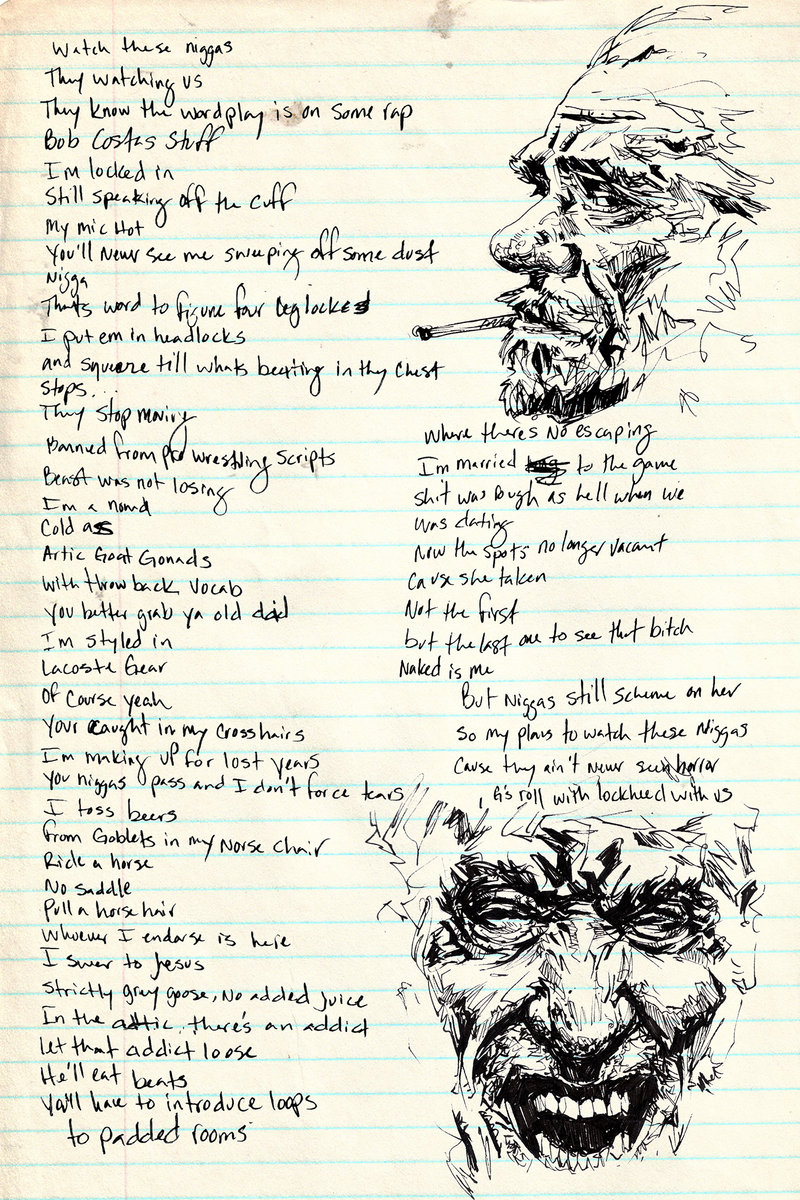 Watch these niggas
They watching us
They know the wordplay is on some rap
Bob Costas Stuff
I'm locked in
Still speaking off the cuff
My mic Hot
You'll never see me sweeping off some dust
Nigga
Thats word to figure four leg lockes
I put em in headlocks
and squeeze till whats beating in thy chest
stops...
They stop moving
Banned from pro wrestling scripts
Beast was not losing
I'm a nomd
Cold as
Artic Goat Gonads
with throwback vocab
You better grab ya old dad
I'm styled in
Lacoste Gear
Of Course yeah
Your caught in my crosshairs
I'm making up for lost years
You niggas pass and I don't force tears
I toss beers
from Goblets in my Norse chair
Ride a horse
No saddle
Pull a horse hair
Whoever I endorse is here
I swer to Jesus
Strictly grey goose, No added juice
In the attic, there's an addict
let that addict loose
He'll eat beats
Ya'll have to introduce loops
to padded rooms
Where there's No escaping
I'm married to the game
shit was rough as hell when we
was dating
Now the spots no longer vacant
Cause she taken
Not the first
but the last one to see that bitch
Naked is me
But Niggas still scheme on her
So my plans to watch these Niggas
Cause they ain't never seen horror
G's roll with lockheed with us